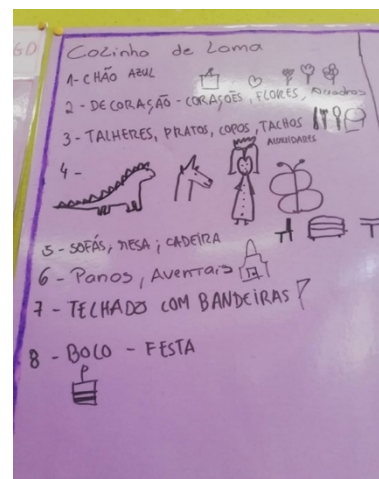 GD
Cozinha de Lama
1- CHÃO AZUL
2 - DECORAÇÃO - CORAÇÕES, FLORES, Quadros
3 - TALHERES, PRATOS, COPOS, TACHOS
4 -
5 - SOFÁS, MESA, CADEIRA
6 - Panos, Aventais
7 - TELHADO COM BANDEIRAS
8 - BOLO - FESTA